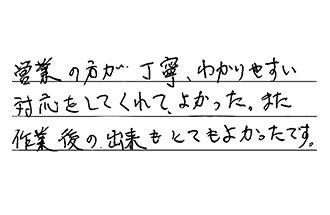 営業の方が丁寧、わかりやすい
対応をしてくれて、よかった。また
作業後の出来もとてもよかったです。